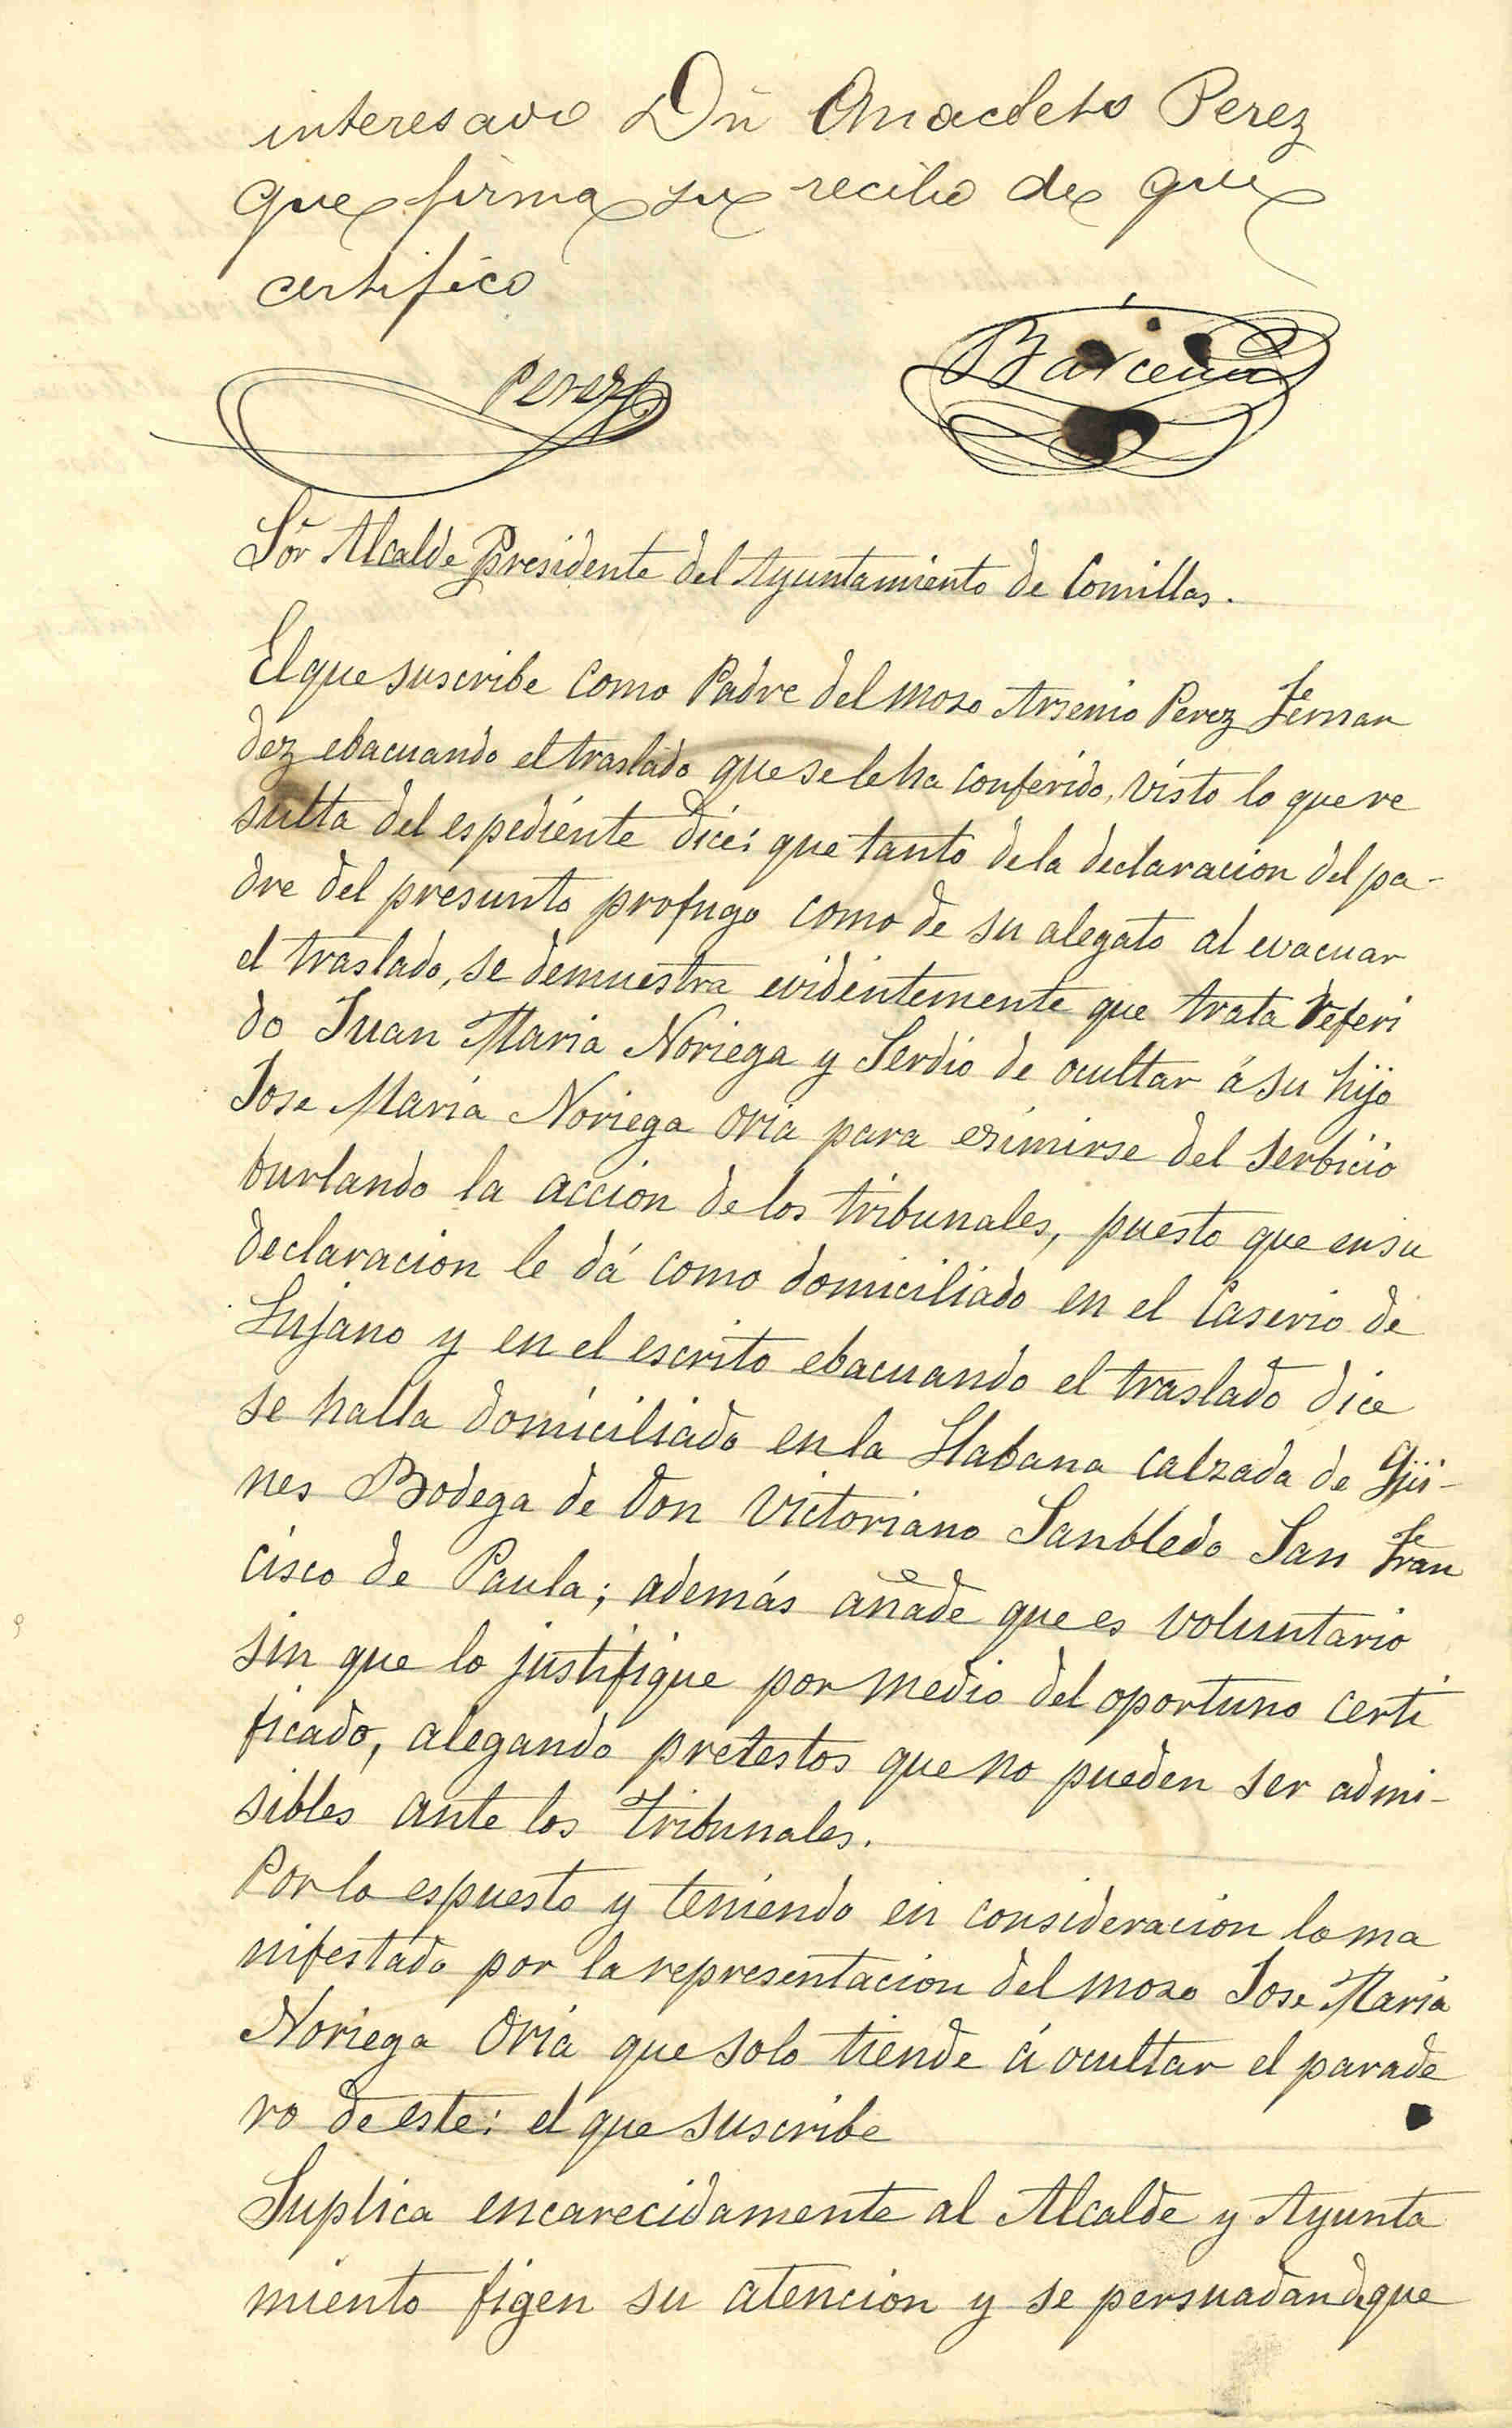 interesado Dn Anacleto Perez
que firma su recibo de que
certifico
Perez
Bárcena
Sór Alcalde Presidente del Ayuntamiento de Comillas.
El que suscribe como Padre del moso Arsenio Perez Fernan
dez ebacuando el traslado que se le ha conferido, visto lo que re
sulta del espediente dice: que tanto de la declaracion del pa-
dre del presunto profugo como de su alegato al evacuar
el traslado, se demuestra evidentemente que trata referi
do Juan Maria Noriega y Serdio de ocultar á su hijo
Jose Maria Noriega Oria para esimirse del serbicio
burlando la acción de los tribunales, puesto que en su
declaracion le dá como domiciliado en el Caserio de
Lujano y en el escrito ebacuando el traslado dice
se halla domiciliado en la Habana calzada de Güi-
nes Bodega de Don Victoriano Sanbledo San Fran
cisco de Paula; además añade que es voluntario
sin que lo justifique por medio del oportuno certi
ficado, alegando pretestos que no pueden ser admi-
sibles ante los tribunales.
Por lo espuesto y teniendo en consideracion lo ma
nifestado por la representacion del moso Jose Maria
Noriega Oria que solo tiende á ocultar el parade
ro de este: el que suscribe
Suplica encarecidamente al Alcalde y Ayunta
miento figen su atencion y se persuadan de que